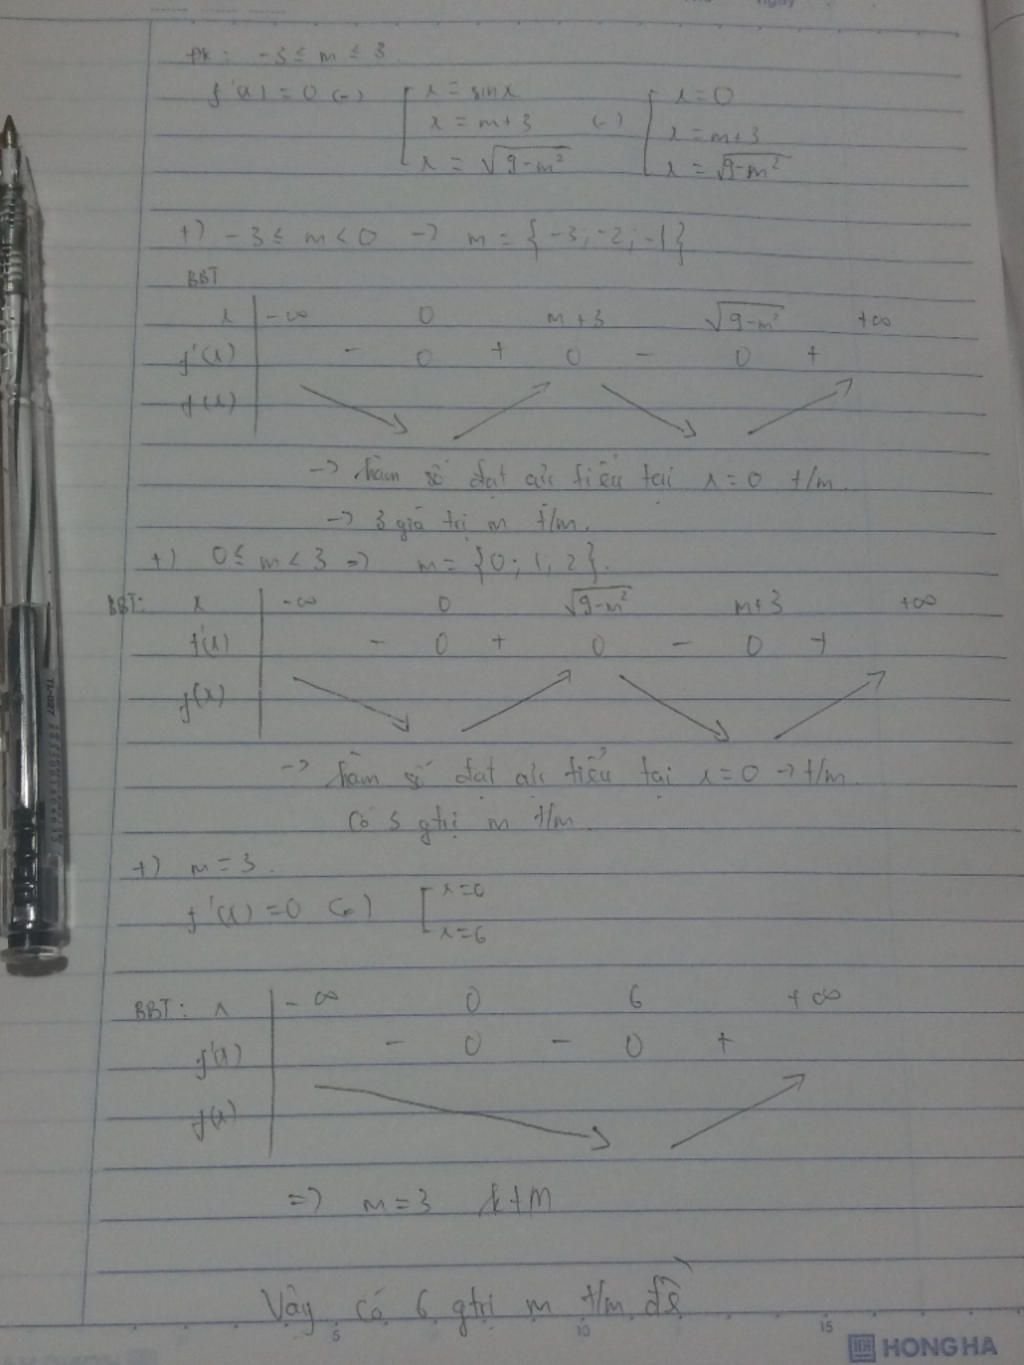 ngày
ĐK: -3 ≤ m ≤ 3
f'(x) = 0 (=) [ x = sinx (=) [ x = 0
x = m+3 x = m+3
x = √(9-m²) x = √(9-m²)
+) -3 ≤ m < 0 -> m = {-3; -2; -1}
BBT
x -∞ 0 m+3 √(9-m²) +∞
f'(x) - 0 + 0 - 0 +
f(x)
-> hàm số đạt cực tiểu tại x = 0 t/m.
-> 3 giá trị m t/m.
+) 0 ≤ m < 3 => m = {0; 1; 2}.
BBT: x -∞ 0 √(9-m²) m+3 +∞
f'(x) - 0 + 0 - 0 +
f(x)
-> hàm số đạt cực tiểu tại x = 0 -> t/m
Có 3 gtrị m t/m.
+) m = 3.
f'(x) = 0 (=) [ x = 0
x = 6
BBT: x -∞ 0 6 +∞
f'(x) - 0 - 0 +
f(x)
=> m = 3 ktm
Vậy có 6 gtrị m t/m đề
5 10 15
HONG HA
TL-027